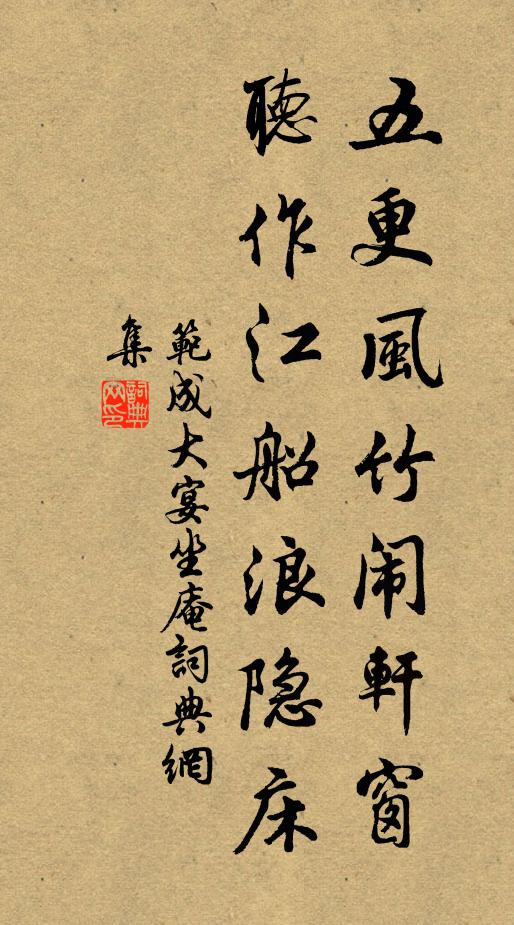 五更風竹闹軒窗
聽作江船浪隐床
範成大宴坐庵詞典網
集
詞典网印